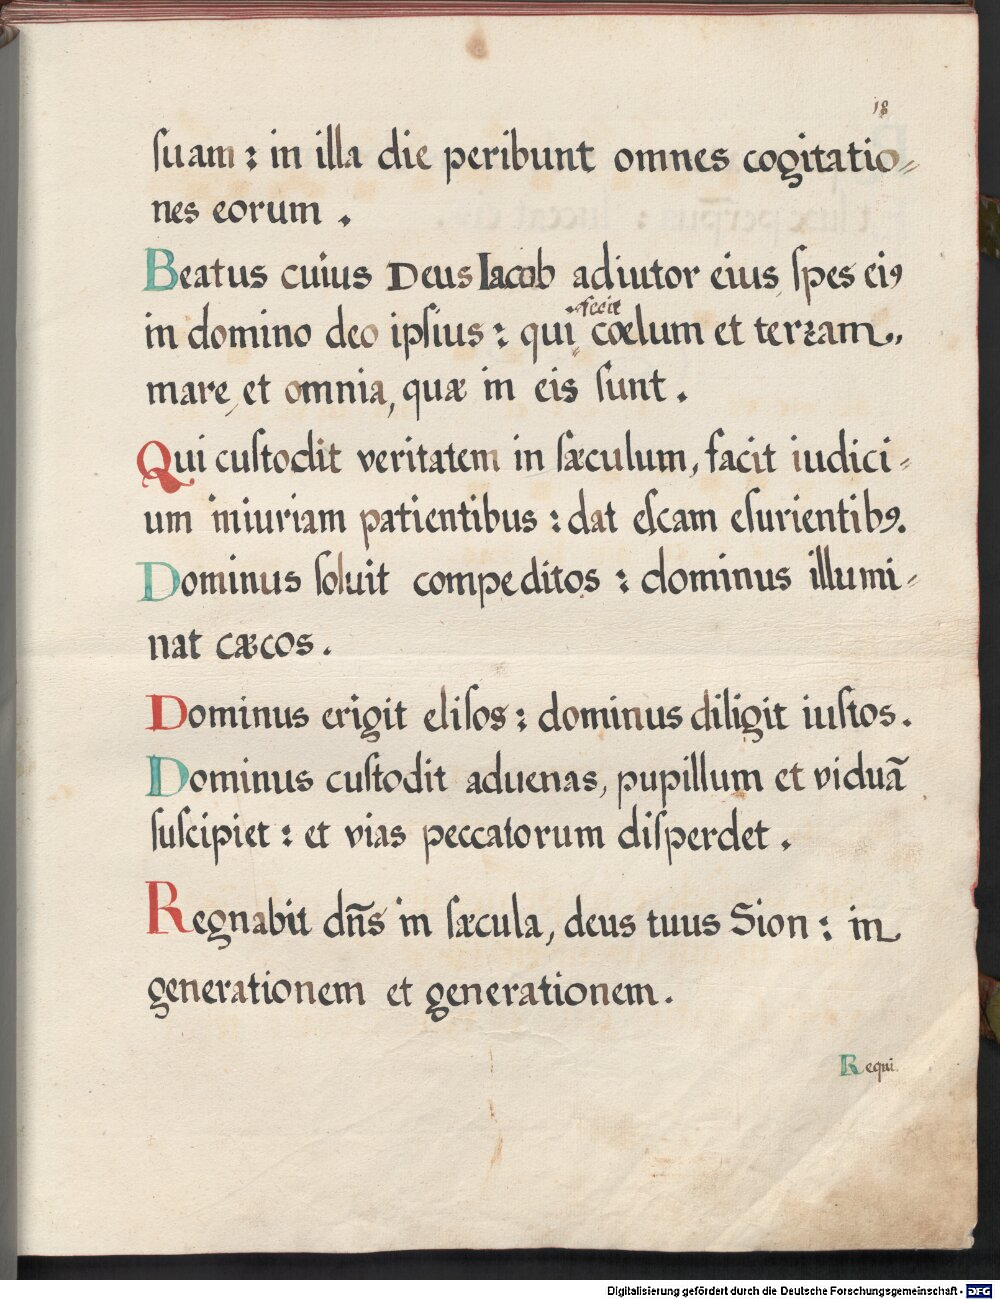 18
ſuam : in illa die peribunt omnes cogitatio⸗
nes eorum .
Beatus cuius Deus Iacob adiutor eius, ſpes eiꝰ
fecit
in domino deo ipſius : qui cœlum et terꝛam,
mare, et omnia, quæ in eis ſunt .
Qui cuſtodit veritatem in ſæculum, facit iudici⸗
um iniuriam patientibus : dat eſcam eſurientibꝰ.
Dominus ſoluit compeditos : dominus illumi⸗
nat cæcos .
Dominus erigit eliſos : dominus diligit iuſtos .
Dominus cuſtodit aduenas, pupillum et viduã
ſuſcipiet : et vias peccatorum diſperdet .
Regnabit dn̄s in ſæcula, deus tuus Sion : in
generationem et generationem .
Requi.
Digitalisierung gefördert durch die Deutsche Forschungsgemeinschaft - DFG